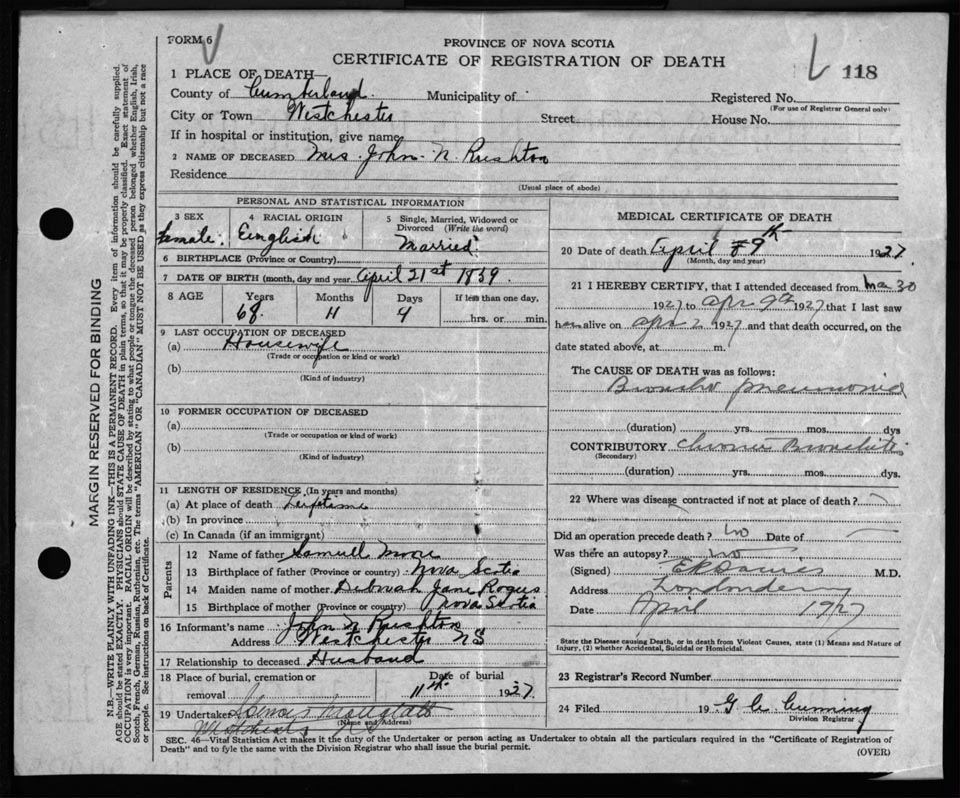 FORM 6
PROVINCE OF NOVA SCOTIA
CERTIFICATE OF REGISTRATION OF DEATH
118
1 PLACE OF DEATH—
County of Cumberland Municipality of Registered No.
(For use of Registrar General only)
City or Town Westchester Street House No.
If in hospital or institution, give name
2 NAME OF DECEASED Mrs. John N. Rushton
Residence
(Usual place of abode)
PERSONAL AND STATISTICAL INFORMATION
3 SEX 4 RACIAL ORIGIN 5 Single, Married, Widowed or Divorced (Write the word)
Female. English Married
6 BIRTHPLACE (Province or Country)
7 DATE OF BIRTH (month, day and year) April 21st 1859.
8 AGE Years Months Days If less than one day,
hrs. or min.
9 LAST OCCUPATION OF DECEASED
(a) Housewife
(Trade or occupation or kind or work)
(b)
(Kind of industry)
10 FORMER OCCUPATION OF DECEASED
(a)
(Trade or occupation or kind of work)
(b)
(Kind of industry)
11 LENGTH OF RESIDENCE (In years and months)
(a) At place of death Lifetime
(b) In province
(c) In Canada (if an immigrant)
Parents
12 Name of father Samuel Moore
13 Birthplace of father (Province or country) Nova Scotia
14 Maiden name of mother Deborah Jane
15 Birthplace of mother (Province or country) Nova Scotia
16 Informant's name John N Rushton
Address Westchester NS
17 Relationship to deceased Husband
18 Place of burial, cremation or removal Date of burial
11th 1927.
19 Undertaker
(Name and Address)
Westchester NS
MEDICAL CERTIFICATE OF DEATH
20 Date of death April 9th 1927.
(Month, day and year)
21 I HEREBY CERTIFY, that I attended deceased from Mar 30
1927 to Apr 9th 1927 that I last saw
h alive on Apr 1927 and that death occurred, on the
date stated above, at m.
The CAUSE OF DEATH was as follows:
Broncho pneumonia
(duration) yrs. mos. dys
CONTRIBUTORY Chronic Bronchitis
(Secondary)
(duration) yrs. mos. dys.
22 Where was disease contracted if not at place of death?
Did an operation precede death? No Date of
Was there an autopsy? No
(Signed) M.D.
Address Londonderry
Date April 1927
State the Disease causing Death, or in death from Violent Causes, state (1) Means and Nature of
Injury, (2) whether Accidental, Suicidal or Homicidal.
23 Registrar's Record Number
24 Filed 19 G C Cumming
Division Registrar
SEC. 46—Vital Statistics Act makes it the duty of the Undertaker or person acting as Undertaker to obtain all the particulars required in the "Certificate of Registration of
Death" and to fyle the same with the Division Registrar who shall issue the burial permit. (OVER)
MARGIN RESERVED FOR BINDING
N.B.—WRITE PLAINLY WITH UNFADING INK—THIS IS A PERMANENT RECORD. Every item of information should be carefully supplied.
AGE should be stated EXACTLY. PHYSICIANS should STATE CAUSE OF DEATH in plain terms, so that it may be properly classified. Exact statement of
OCCUPATION is very important. RACIAL ORIGIN will be described by stating to what people or tongue the deceased person belonged whether English, Irish,
Scotch, French, German, Russian, Ruthenian, etc. The terms "AMERICAN" OR "CANADIAN" MUST NOT BE USED as they express citizenship but not a race
or people. See instructions on back of Certificate.